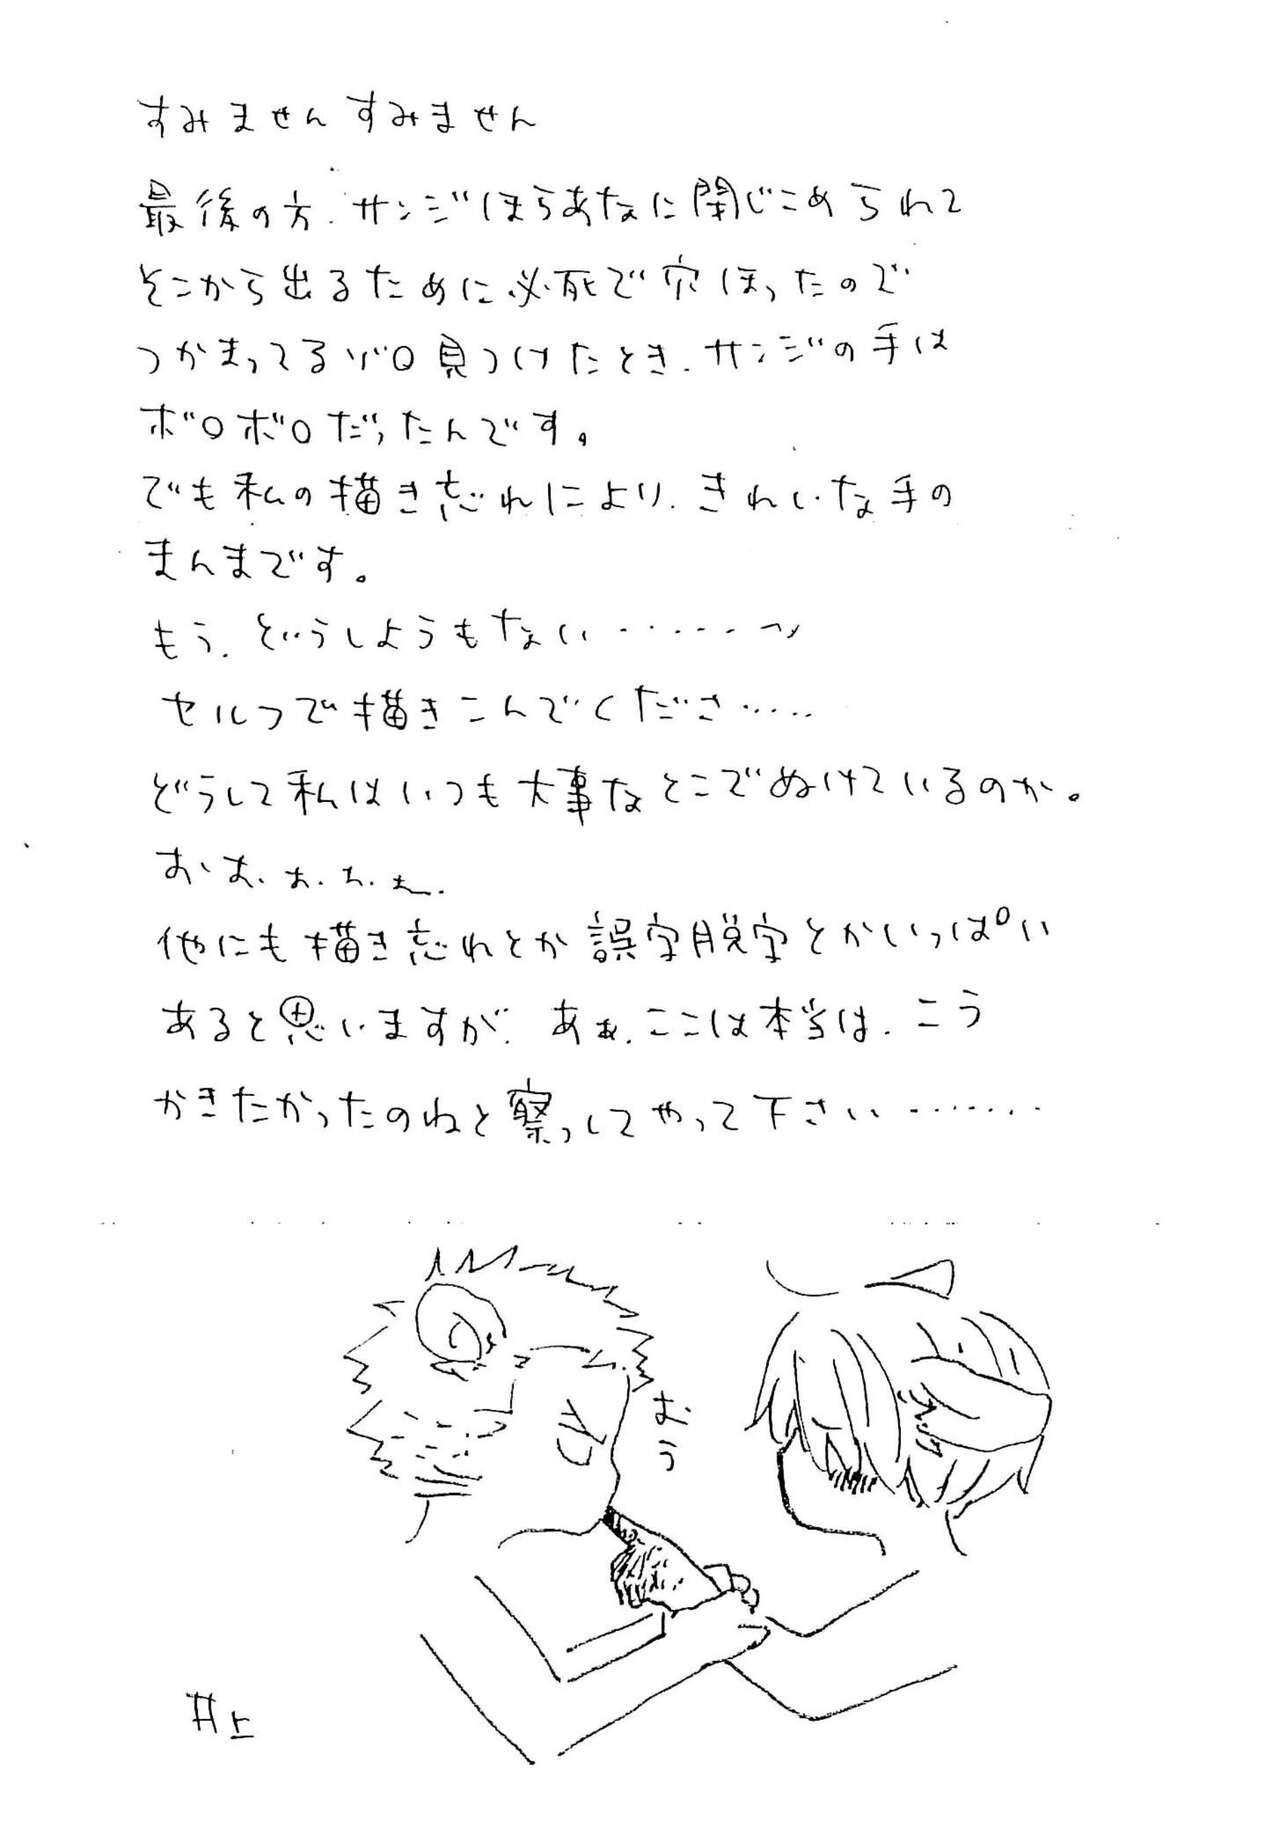 すみませんすみません
最後の方、サンジほらあなに閉じこめられて
そこから出るために必死で穴ほったので
つかまってるゾロ見つけたとき、サンジの手は
ボロボロだったんです。
でも私の描き忘れにより、きれいな手の
まんまです。
もう、どうしようもない……
セルフで描きこんでくださ……
どうして私はいつも大事なとこでぬけているのか。
おお、お、お、お、
他にも描き忘れとか誤字脱字とかいっぱい
あると思いますが、あぁ、ここは本当は、こう
かきたかったのねと察っしてやって下さい………
おう
井上